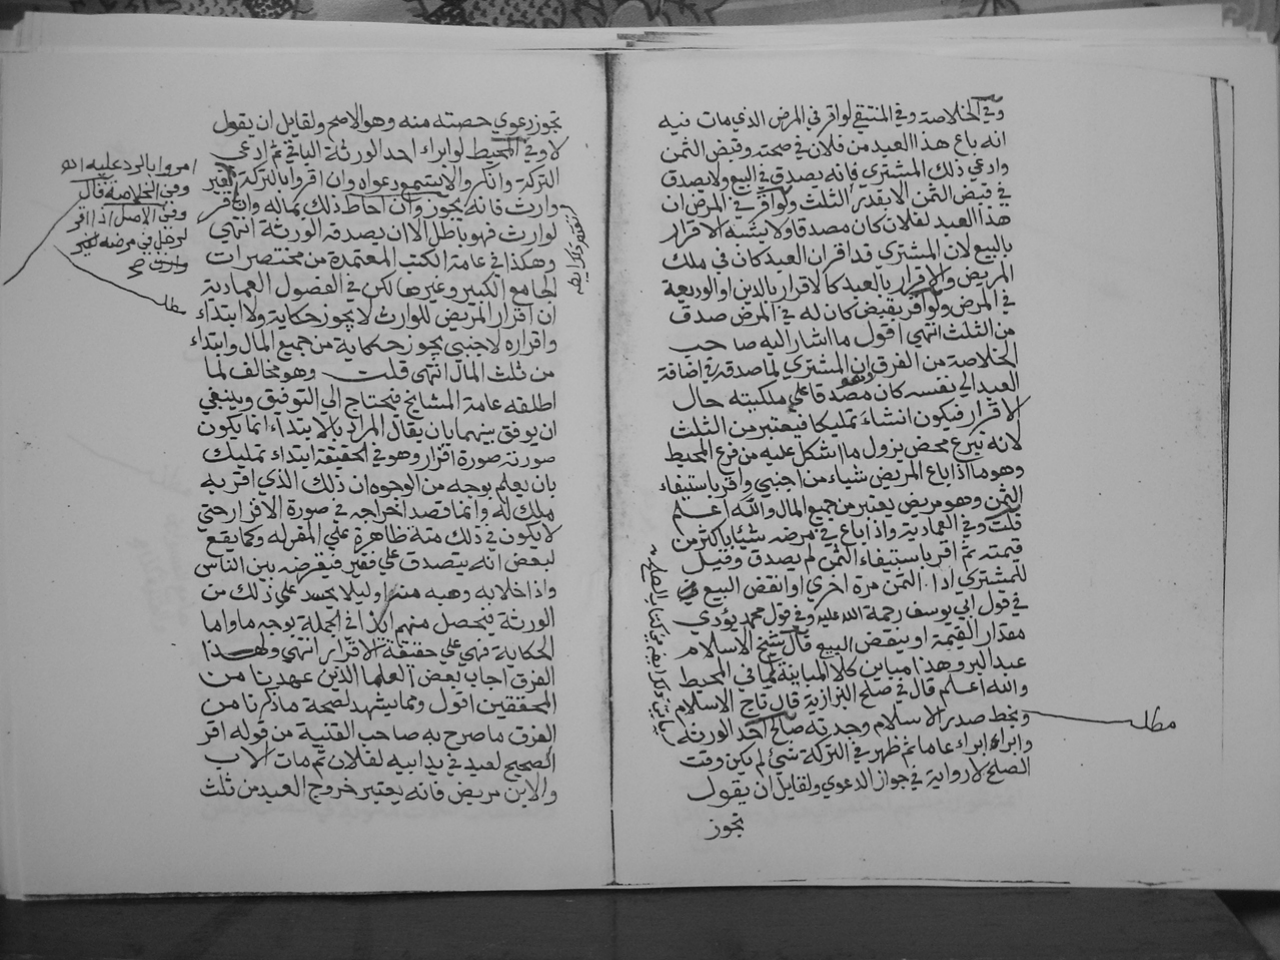 وفي الخلاصة وفي المنتقي لو اقر في المرض الذي مات فيه
انه باع هذا العبد من فلان في صحته وقبض الثمن
وادعي ذلك المشتري فانه يصدق في البيع ولا يصدق
في قبض الثمن الا بقدر الثلث ولو اقر في المرض ان
هذا العبد لفلان كان مصدقا ولا يشبه الاقرار
بالبيع لان المشتري قد اقر ان العبد كان في ملك
المريض والاقرار بالعبد كالاقرار بالدين او الوديعة
في المرض ولو اقر بقبض كان له في المرض صدق
من الثلث انتهي اقول ما اشار اليه صاحب
الخلاصة من الفرق ان المشتري لما صدقه في اضافة
العبد الي نفسه كان مصدقا علي ملكيته حال
الاقرار فيكون انشاء تمليكا فيعتبر من الثلث
لانه تبرع محض يزول ما اشكل عليه من فرع المحيط
وهو ما اذا باع المريض شياء من اجنبي واقر باستيفاء
الثمن وهو مريض يعتبر من جميع المال والله اعلم
قلت وفي العمادية واذا باع في مرضه شيئا باكثر من
قيمته ثم اقر باستيفاء الثمن لم يصدق وقيل
للمشتري اد الثمن مرة اخري او انقض البيع
في قول ابي يوسف رحمة الله عليه وفي قول محمد يؤدي
مقدار القيمة او ينقض البيع قال شيخ الاسلام
عبد البر وهذا مباين كلا المباينة لما في المحيط
والله اعلم قال في صلح البزازية قال تاج الاسلام
وبخط صدر الاسلام وجدته صالح احد الورثة
وابراء ابراء عاما ثم ظهر في التركة شيء لم يكن وقت
الصلح لا رواية في جواز الدعوي ولقايل ان يقول
تجوز
مطلب
تجوز دعوي حصته منه وهو الاصح ولقايل ان يقول
لا وفي المحيط لو ابراء احد الورثة الباقي ثم ادعي
التركة وانكروا لا تسمع دعواه وان اقروا بالتركة
وارث فانه يجوز وان احاط ذلك بماله وان اقر
لوارث فهو باطل الا ان يصدقه الورثة انتهي
وهكذا في عامة الكتب المعتمدة من مختصرات
الجامع الكبير وغيرها لكن في الفصول العمادية
ان اقرار المريض للوارث لا يجوز حكاية ولا ابتداء
واقراره لاجنبي يجوز حكاية من جميع المال وابتداء
من ثلث المال انتهي قلت وهو مخالف لما
اطلقه عامة المشايخ فيحتاج الي التوفيق وينبغي
ان يوفق بينهما بان يقال المراد بالابتداء انما يكون
صورته صورة اقرار وهو في الحقيقة ابتداء تمليك
بان يعلم بوجه من الوجوه ان ذلك الذي اقر به
ملك له وانما قصد اخراجه في صورة الاقرار حتي
لا يكون في ذلك منة ظاهرة علي المقر له وكما يقع
لبعض انه يتصدق علي فقير فيقرضه بين الناس
واذا خلا به وهبه منه او ليلا يحسد علي ذلك من
الورثة فيحصل منهم ايذا في الجملة بوجه ما واما
الحكاية فهي علي حقيقة الاقرار انتهي ولهذا
الفرق اجاب بعض العلما الذين عهدنا من
المحققين اقول ومما يشهد لصحة ما ذكرنا من
الفرق ما صرح به صاحب القنية من قوله اقر
الصحيح لعبد في يد ابيه لفلان ثم مات الاب
والابن مريض فانه يعتبر خروج العبد من ثلث
امروا بالرد عليه
وفي الخلاصة قال
وفي الاصل اذا اقر
لرجل في مرضه لغير
وارث
مطلب